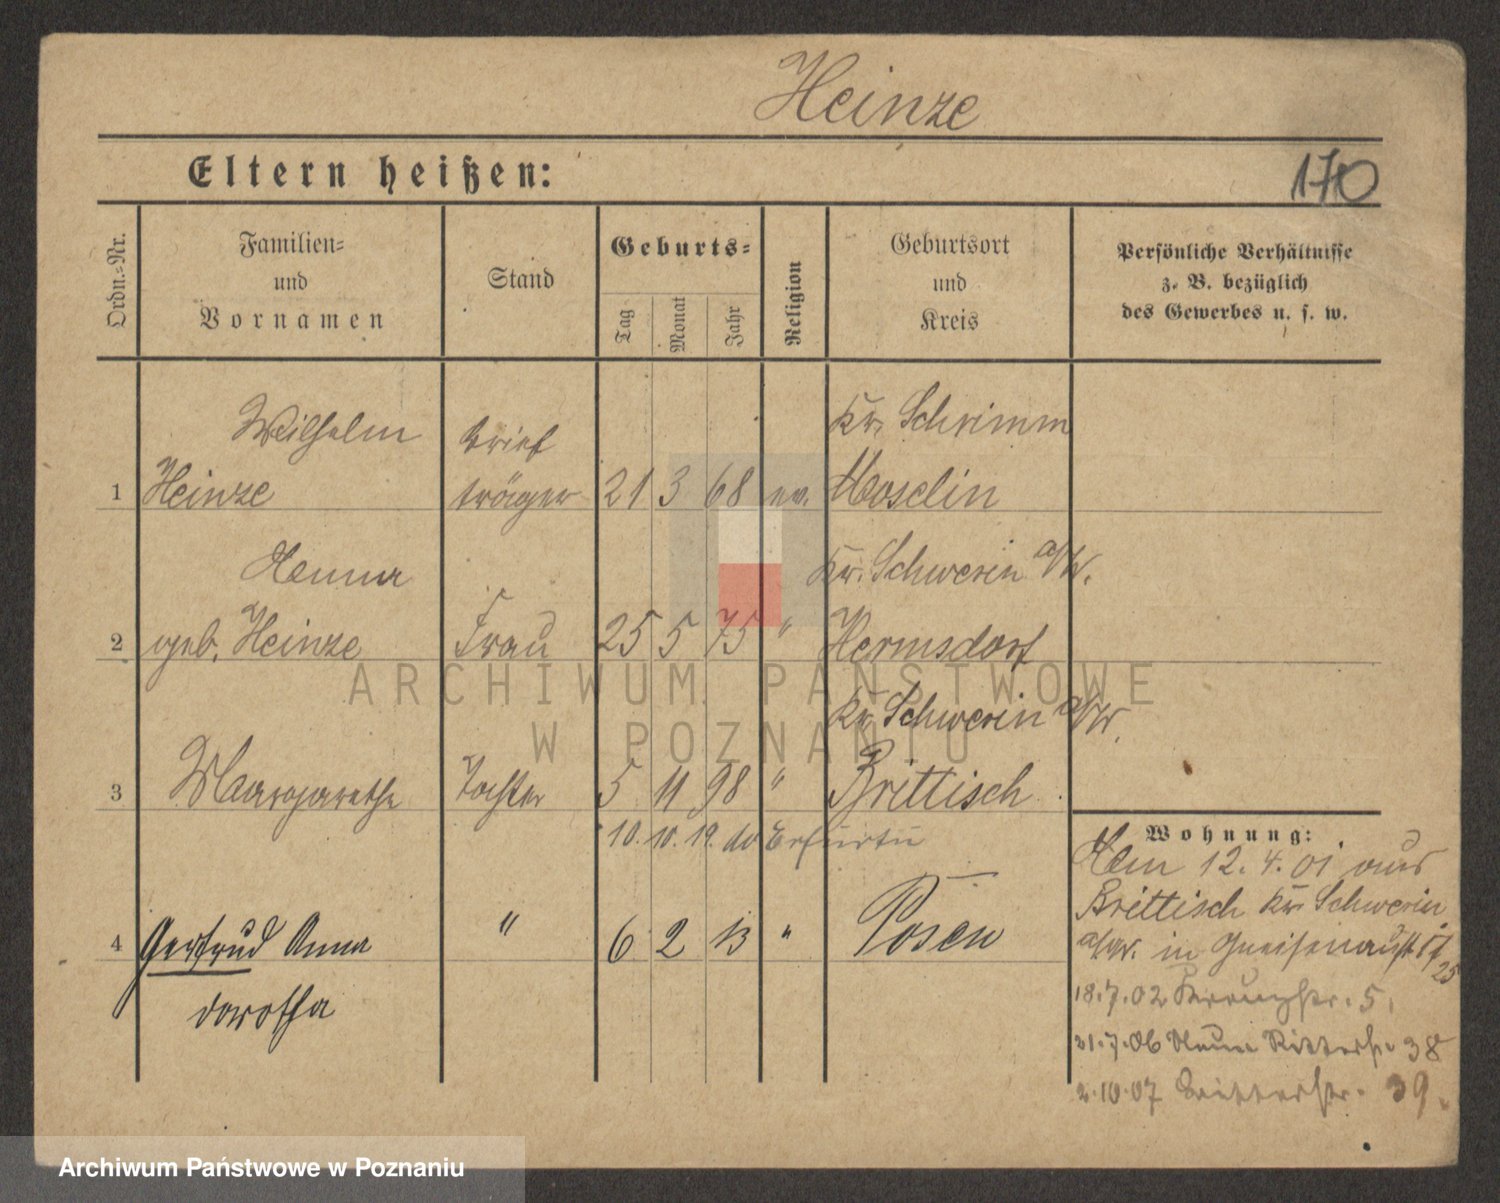 Heinze
Eltern heißen:
170
Ordn.-Nr.
Familien-
und
Vornamen
Stand
Geburts-
Tag
Monat
Jahr
Religion
Geburtsort
und
Kreis
Persönliche Verhältnisse
z. B. bezüglich
des Gewerbes u. s. w.
Wilhelm
brief
Kr. Schrimm
1 Heinze
träger 21 3 68 ev.
Kr. Schwerin a/W.
2 geb. Heinze Frau 25 5 75 " Hermsdorf
Kr. Schwerin a/W.
3 Margarethe Tochter 5 11 98 " Brittisch
10. 10. 19.
4 Gertrud Anna " 6 2 13 " Posen
dorothea
Wohnung:
12. 4. 01 aus
Brittisch Kr. Schwerin
a/W. in Gneisenaustr.
25
18.7.02 Kreuzstr. 5.
21.7.06 Neue Ritterstr. 38
2.10.07 Ritterstr. 39.
ARCHIWUM PAŃSTWOWE
W POZNANIU
Archiwum Państwowe w Poznaniu